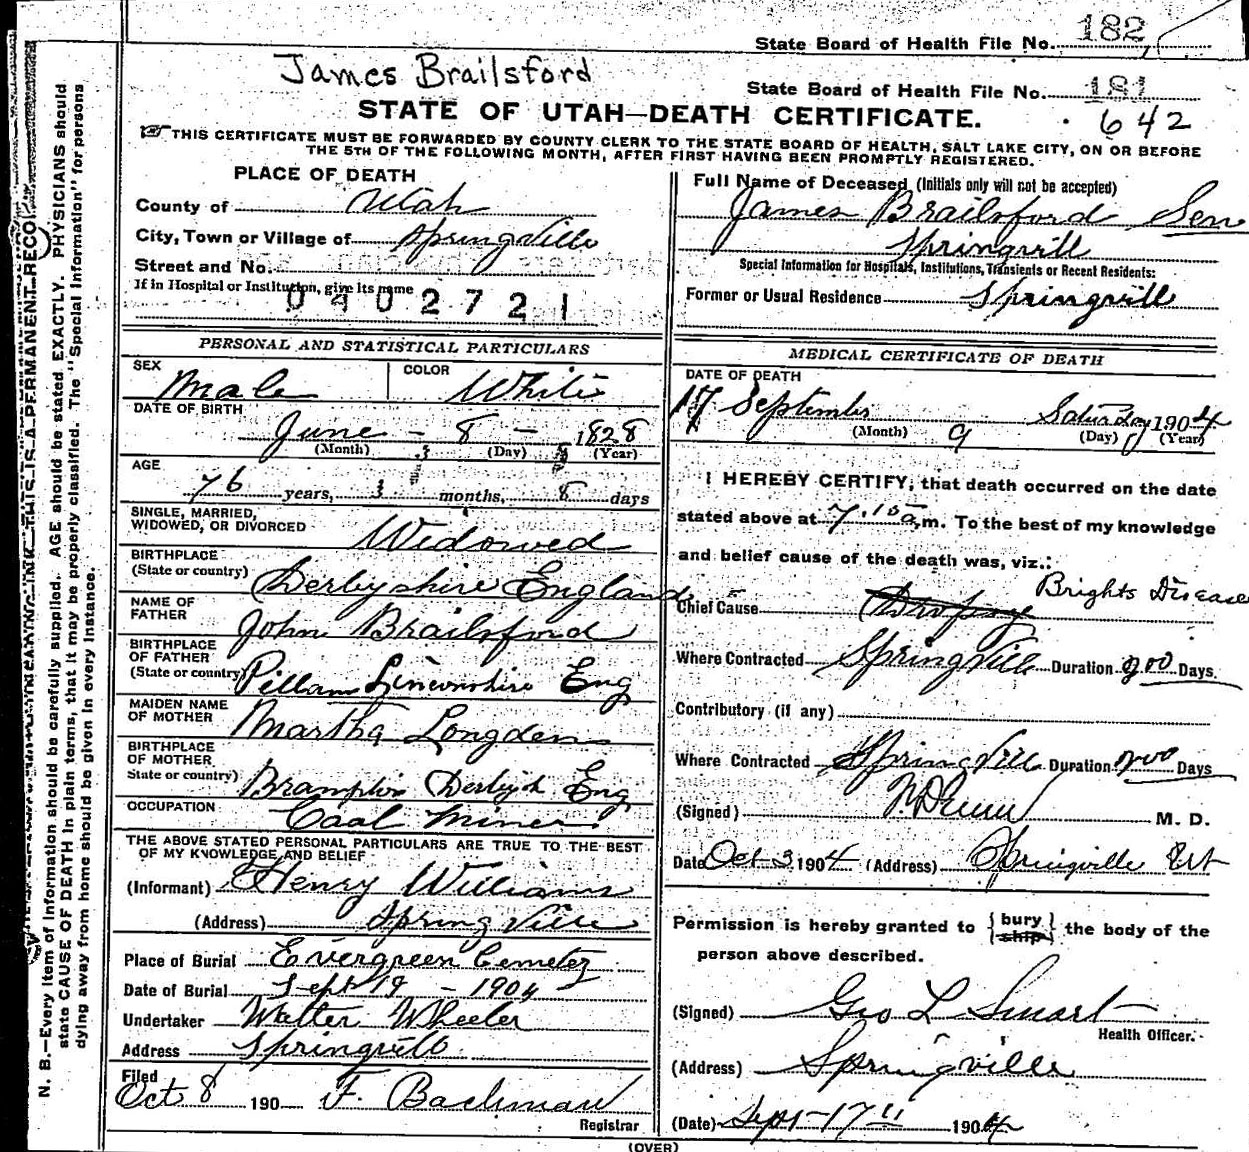 State Board of Health File No. 182
James Brailsford
State Board of Health File No. 181
STATE OF UTAH—DEATH CERTIFICATE. 642
THIS CERTIFICATE MUST BE FORWARDED BY COUNTY CLERK TO THE STATE BOARD OF HEALTH, SALT LAKE CITY, ON OR BEFORE
THE 5TH OF THE FOLLOWING MONTH, AFTER FIRST HAVING BEEN PROMPTLY REGISTERED.
N. B.—Every item of information should be carefully supplied. AGE should be stated EXACTLY. PHYSICIANS should
state CAUSE OF DEATH in plain terms, that it may be properly classified. The "Special Information" for persons
dying away from home should be given in every instance.
PLACE OF DEATH
County of Utah
City, Town or Village of Springville
Street and No.
If in Hospital or Institution, give its name
0402721
PERSONAL AND STATISTICAL PARTICULARS
SEX Male COLOR White
DATE OF BIRTH
June - 8 - 1828
(Month) (Day) (Year)
AGE
76 years, 3 months, 8 days
SINGLE, MARRIED,
WIDOWED, OR DIVORCED Widowed
BIRTHPLACE
(State or country) Derbyshire England
NAME OF
FATHER John Brailsford
BIRTHPLACE
OF FATHER
(State or country) Pillam Lincolnshire Eng
MAIDEN NAME
OF MOTHER Martha Longden
BIRTHPLACE
OF MOTHER
State or country) Brampton Derbysh Eng
OCCUPATION Coal Miner
THE ABOVE STATED PERSONAL PARTICULARS ARE TRUE TO THE BEST
OF MY KNOWLEDGE AND BELIEF
(Informant) Henry Williams
(Address) Springville
Place of Burial Evergreen Cemetez
Date of Burial Sept 19 - 1904
Undertaker Walter Wheeler
Address Springville
Filed
Oct 8 190 F. Bachman
Registrar
Full Name of Deceased (Initials only will not be accepted)
James Brailsford Sen
Springvill
Special Information for Hospitals, Institutions, Transients or Recent Residents:
Former or Usual Residence Springvill
MEDICAL CERTIFICATE OF DEATH
DATE OF DEATH
17 September Saturday 1904
(Month) 9 (Day) (Year)
I HEREBY CERTIFY, that death occurred on the date
stated above at 7.15 a.m. To the best of my knowledge
and belief cause of the death was, viz.:
Brights Disease
Chief Cause Dropsy
Where Contracted Springville Duration 200 Days.
Contributory (if any)
Where Contracted Springvill Duration 200 Days
(Signed) M. D.
Date Oct 3 1904 (Address) Springville Ut
Permission is hereby granted to { bury ship } the body of the
person above described.
(Signed) Geo L Smart
Health Officer.
(Address) Springville
(Date) Sept 17 11 1904
(OVER)